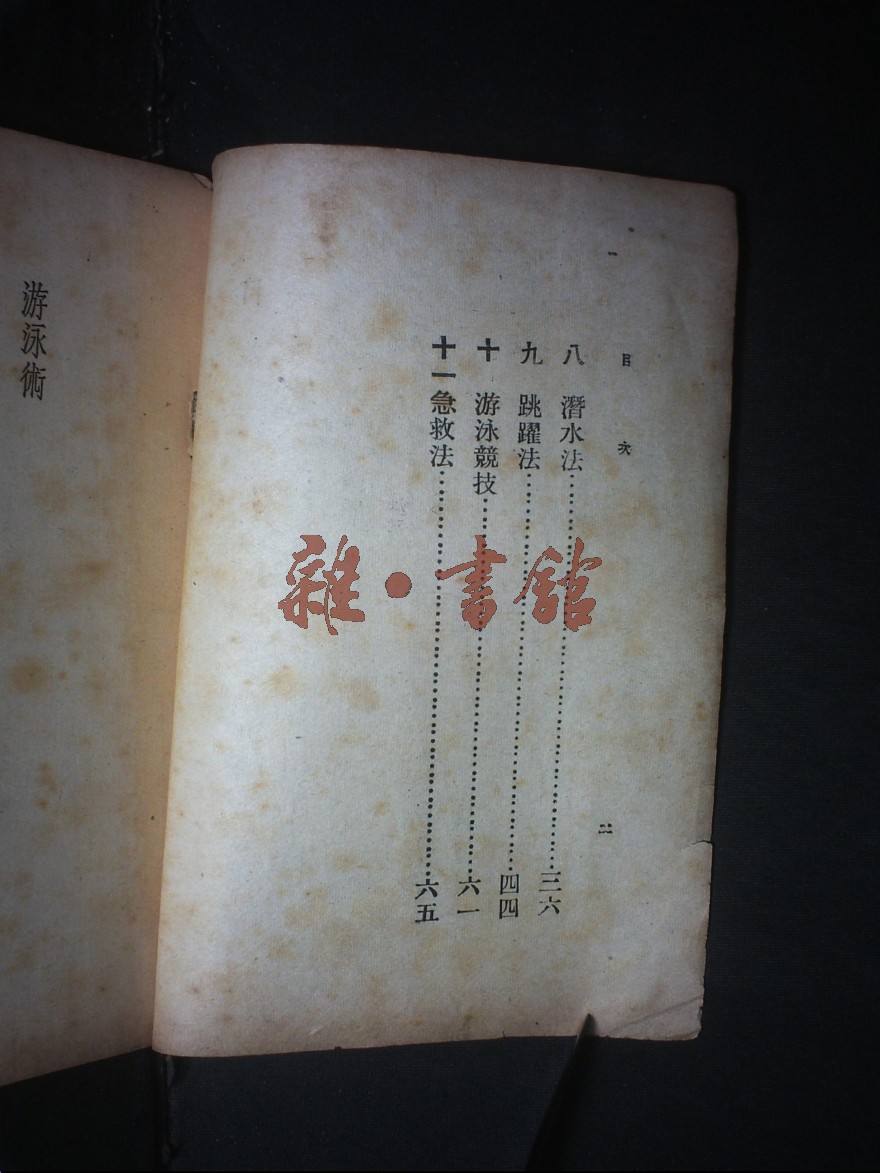 目次
二
八 潛水法……三六
九 跳躍法……四四
十 游泳競技……六一
十一 急救法……六五
游泳術
雜·書館